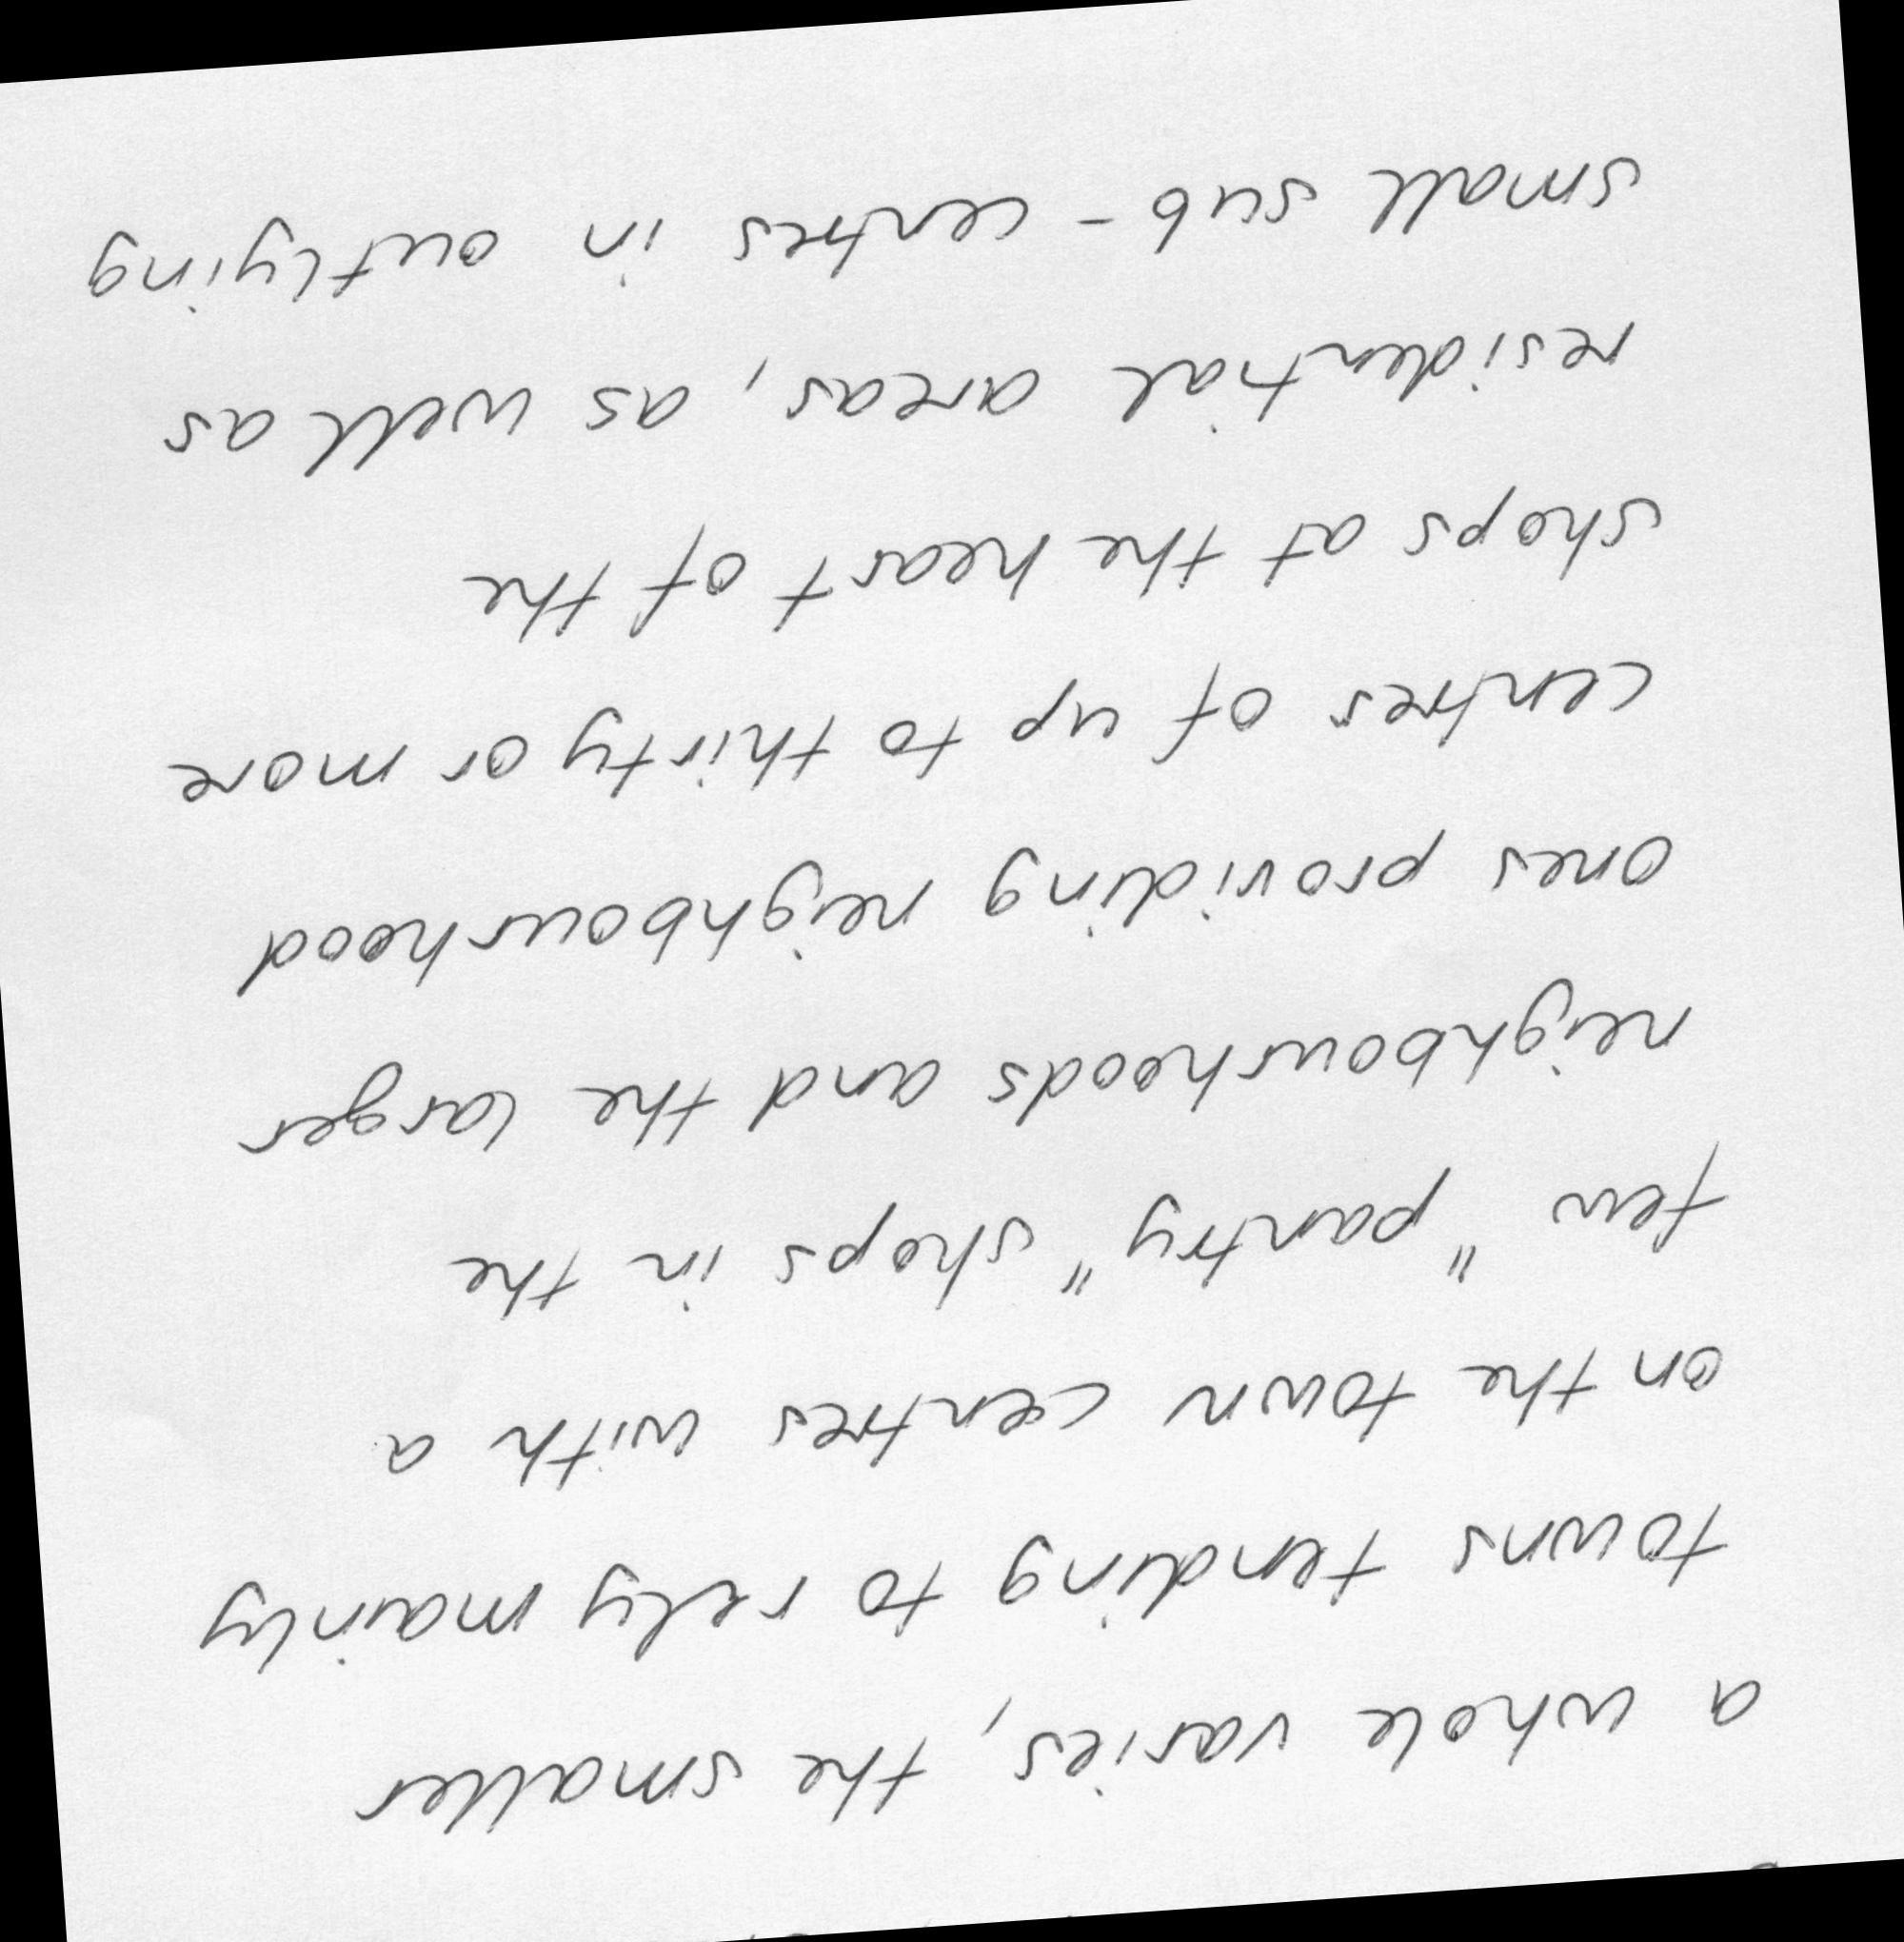 a whole varies, the smaller
towns tending to rely mainly
on the town centres with a
few "pantry" shops in the
neighbourhoods and the larger
ones providing neighbourhood
centres of up to thirty or more
shops at the heart of the
residential areas, as well as
small sub-centres in outlying